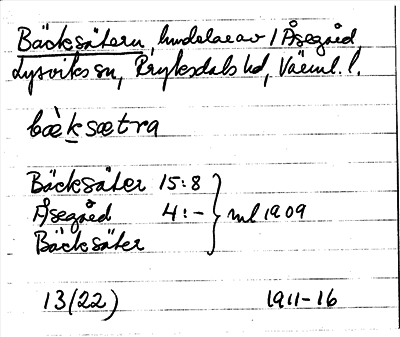 Bäcksätern, hmdelar av 1 Åsegård,
Lysviks sn, Fryksdals hd, Värml. l.
bæ̀ksætra
Bäcksäter 15:8
Åsegård 4:- } ml 1909
Bäcksäter
13(22) 1911-16